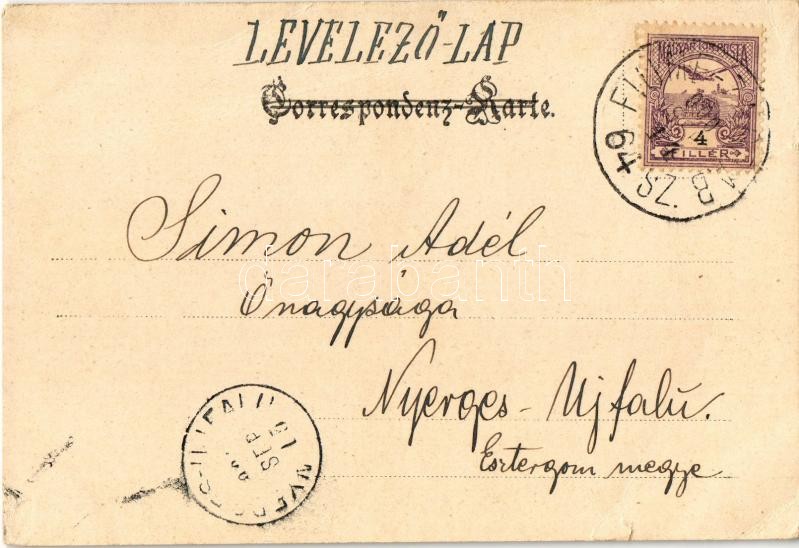 LEVELEZŐ-LAP
Correspondenz-Karte.
MAGYAR KIR. POSTA
4
FILLÉR
49
SZ.
Simon Adél
Őnagysága
Nyerges-Ujfalú.
Esztergom megye
SEP
darabanth